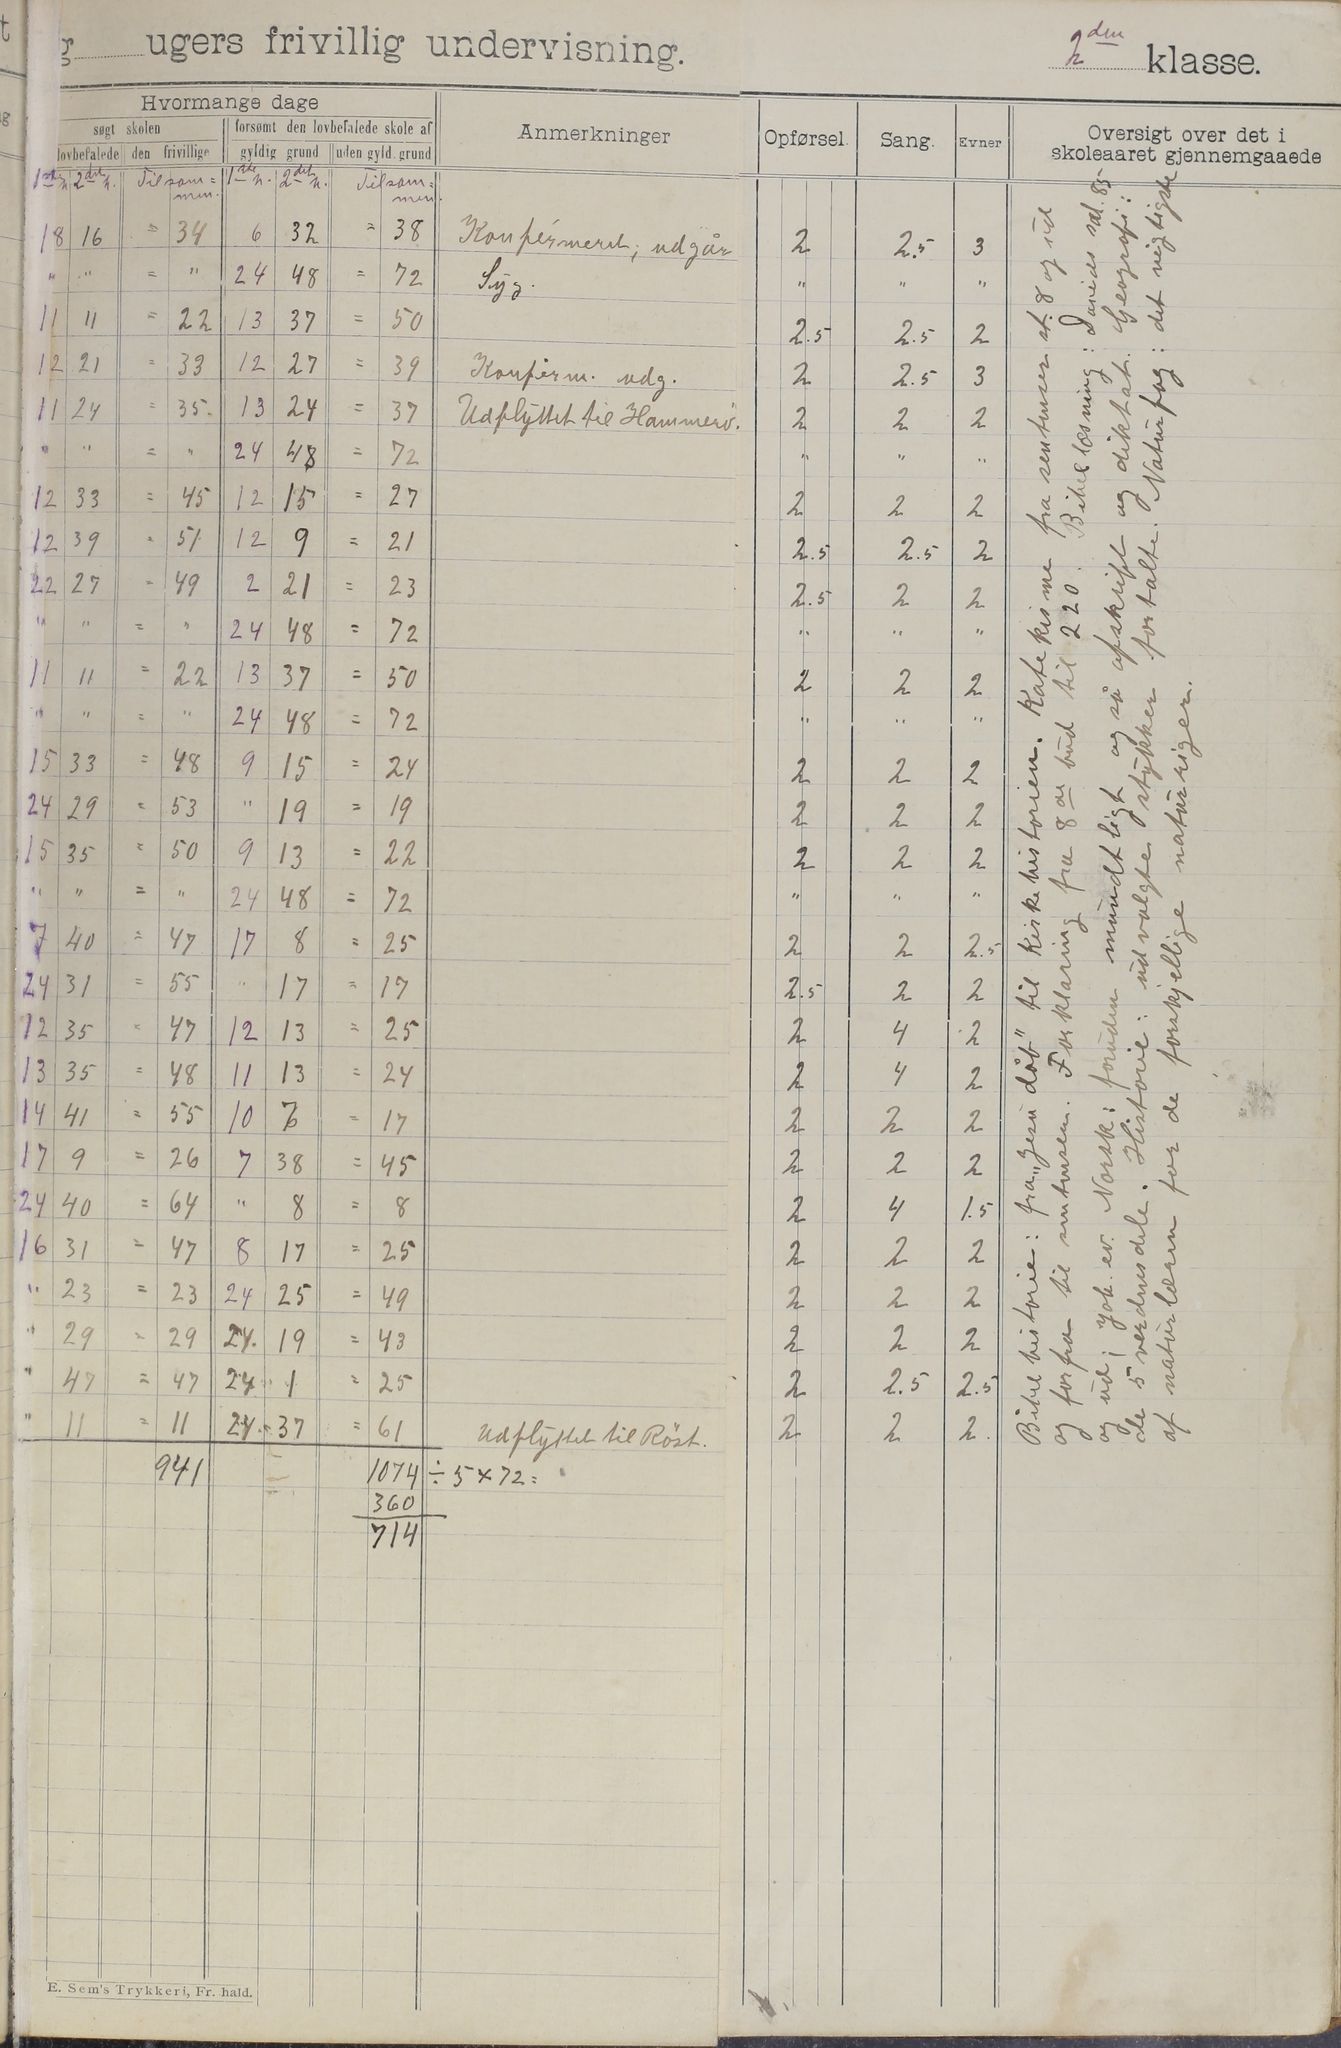 ugers frivillig undervisning.
2den klasse.
Hvormange dage
søgt skolen | forsømt den lovbefalede skole af | Anmerkninger | Opførsel. | Sang. | Evner | Oversigt over det i skoleaaret gjennemgaaede
lovbefalede | den frivillige | gyldig grund | uden gyld. grund
1ste h. 2det h. | Tilsammen. | 1ste h. 2det h. | Tilsammen.
18 16 = 34 6 32 = 38 Konfirmeret; udgår 2 2.5 3
" " = " 24 48 = 72 Syg. " " "
11 11 = 22 13 37 = 50 2.5 2.5 2
12 21 = 33 12 27 = 39 Konfirm. udg. 2 2.5 3
11 24 = 35 13 24 = 37 Udflyttet til Hammerö. 2 2 2
" " = " 24 48 = 72 " " "
12 33 = 45 12 15 = 27 2 2 2
12 39 = 51 12 9 = 21 2.5 2.5 2
22 27 = 49 2 21 = 23 2.5 2 2
" " = " 24 48 = 72 " " "
11 11 = 22 13 37 = 50 2 2 2
" " = " 24 48 = 72 " " "
15 33 = 48 9 15 = 24 2 2 2
24 29 = 53 " 19 = 19 2 2 2
15 35 = 50 9 13 = 22 2 2 2
" " = " 24 48 = 72 " " "
7 40 = 47 17 8 = 25 2 2 2.5
24 31 = 55 " 17 = 17 2.5 2 2
12 35 = 47 12 13 = 25 2 4 2
13 35 = 48 11 13 = 24 2 4 2
14 41 = 55 10 7 = 17 2 2 2
17 9 = 26 7 38 = 45 2 2 2
24 40 = 64 " 8 = 8 2 4 1.5
16 31 = 47 8 17 = 25 2 2 2
" 23 = 23 24 25 = 49 2 2 2
" 29 = 29 24 19 = 43 2 2 2
" 47 = 47 24 1 = 25 2 2.5 2.5
" 11 = 11 24 37 = 61 Udflyttet til Röst. 2 2 2
941 1074 ÷ 5 × 72 =
360
714
Bibelhistorie: fra "Jesu dåb" til kirkehistorien. Katekisme fra sentensen st. 8 og ud
og forfra til sentensen. Forklaring fra 8de bud til 220. Bibellæsning: Davids sal. 85
og ud; joh. ev. Norsk: foruden mundtligt også afskrift og diktat. Geografi:
de 5 verdensdele. Historie: udvalgte stykker fortalte. Naturfag: det vigtigste
af naturlæren for de forskjellige naturriger.
E. Sem's Trykkeri, Fr. hald.